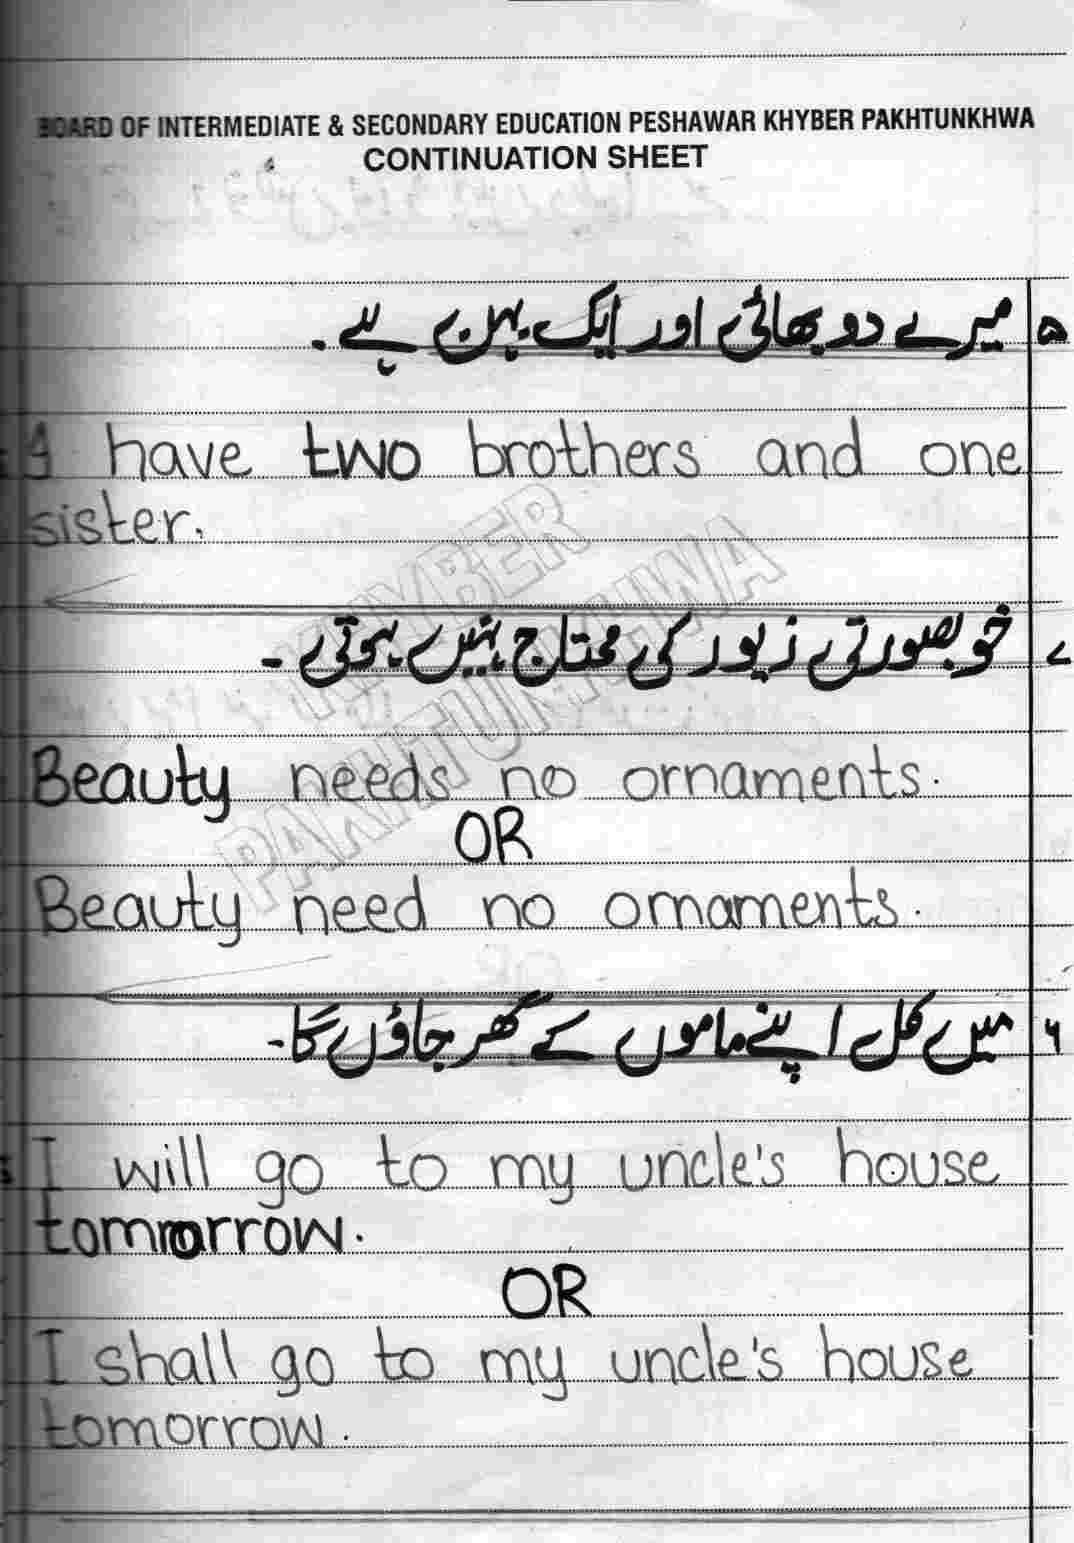 BOARD OF INTERMEDIATE & SECONDARY EDUCATION PESHAWAR KHYBER PAKHTUNKHWA
CONTINUATION SHEET
۵ میرے دو بھائی اور ایک بہن ہے۔
I have two brothers and one
sister.
KHYBER
PAKHTUNKHWA
خوبصورتی زیور کی محتاج نہیں ہوتی۔
Beauty needs no ornaments.
OR
Beauty need no ornaments.
۶ میں کل اپنے ماموں کے گھر جاؤں گا۔
I will go to my uncle's house
tomorrow.
OR
I shall go to my uncle's house
tomorrow.